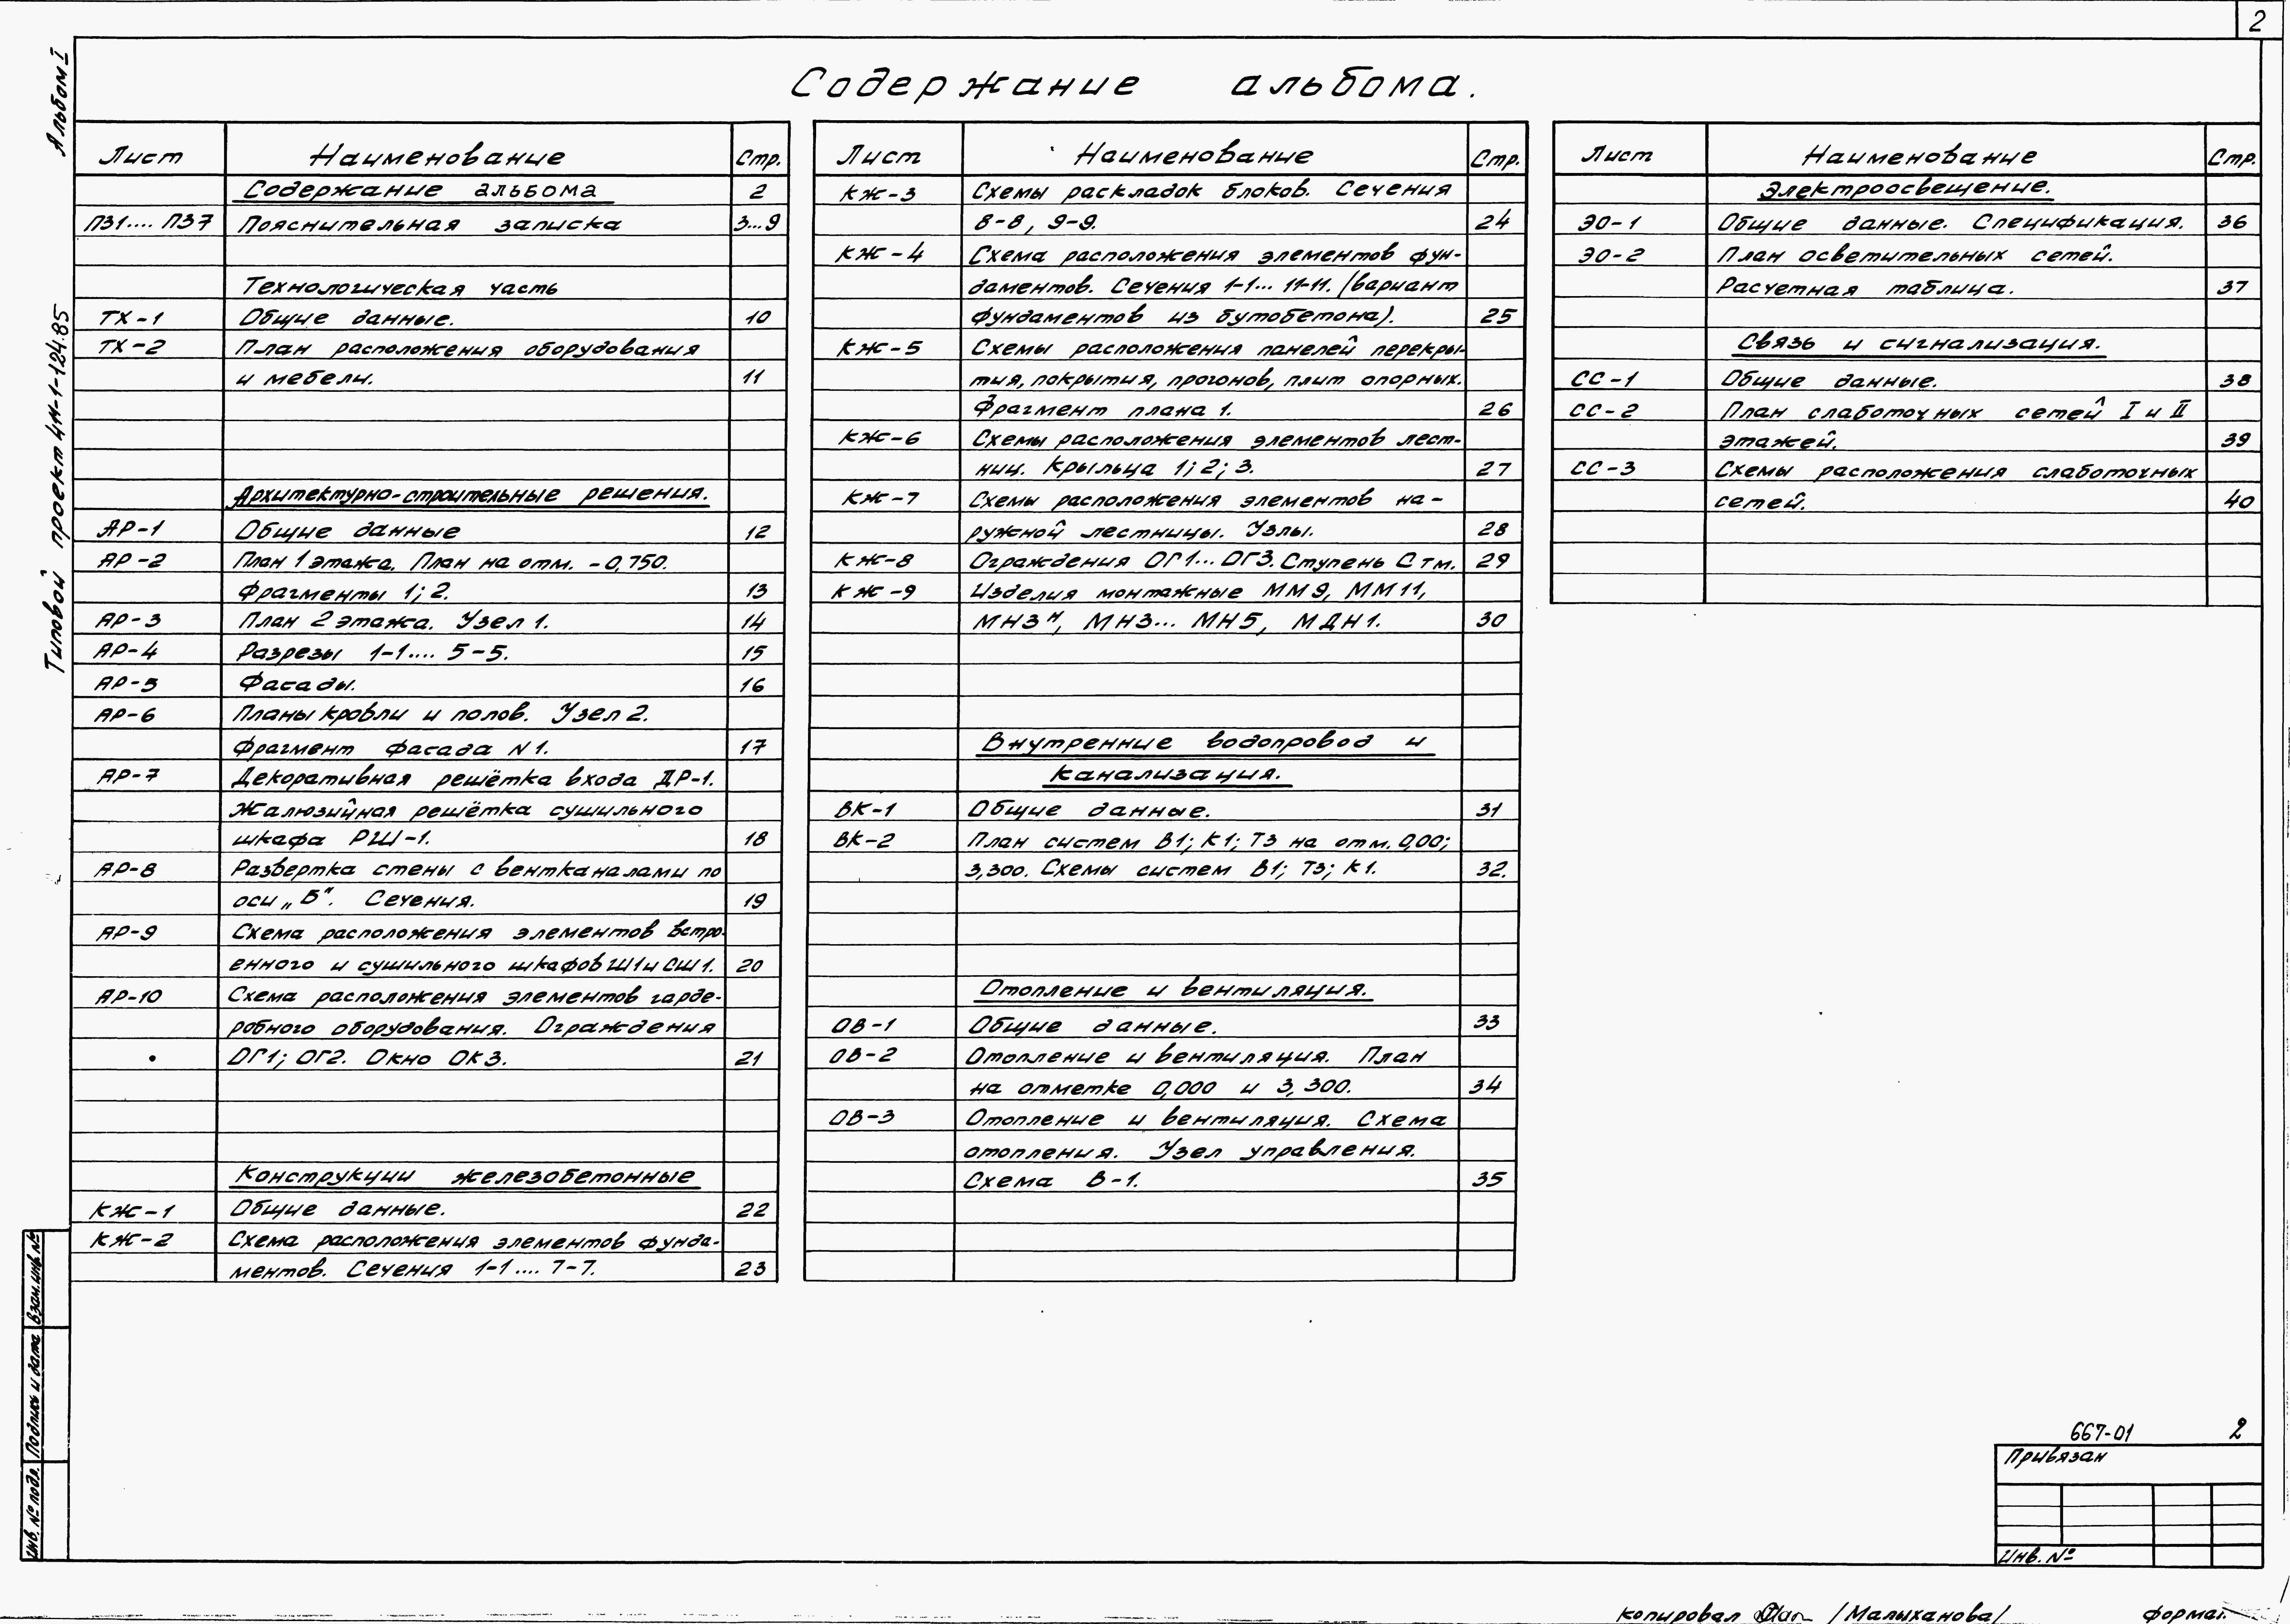 2
Альбом I
Типовой проект 4Н-1-124.85
Содержание альбома.
Лист Наименование Стр.
Содержание альбома 2
ПЗ1.... ПЗ7 Пояснительная записка 3...9
Технологическая часть
ТХ-1 Общие данные. 10
ТХ-2 План расположения оборудования
и мебели. 11
Архитектурно-строительные решения.
АР-1 Общие данные 12
АР-2 План 1 этажа. План на отм. -0,750.
Фрагменты 1; 2. 13
АР-3 План 2 этажа. Узел 1. 14
АР-4 Разрезы 1-1.... 5-5. 15
АР-5 Фасады. 16
АР-6 Планы кровли и полов. Узел 2.
Фрагмент фасада N1. 17
АР-7 Декоративная решётка входа ДР-1.
Жалюзийная решётка сушильного
шкафа РШ-1. 18
АР-8 Развертка стены с вентканалами по
оси „Б". Сечения. 19
АР-9 Схема расположения элементов встро-
енного и сушильного шкафов Ш1 и СШ1. 20
АР-10 Схема расположения элементов гарде-
робного оборудования. Ограждения
ОГ1; ОГ2. Окно ОК3. 21
Конструкции железобетонные
КЖ-1 Общие данные. 22
КЖ-2 Схема расположения элементов фунда-
ментов. Сечения 1-1.... 7-7. 23
Лист Наименование Стр.
КЖ-3 Схемы раскладок блоков. Сечения
8-8, 9-9. 24
КЖ-4 Схема расположения элементов фун-
даментов. Сечения 1-1... 11-11. (вариант
фундаментов из бутобетона). 25
КЖ-5 Схемы расположения панелей перекры-
тия, покрытия, прогонов, плит опорных.
Фрагмент плана 1. 26
КЖ-6 Схемы расположения элементов лест-
ниц. Крыльца 1; 2; 3. 27
КЖ-7 Схемы расположения элементов на-
ружной лестницы. Узлы. 28
КЖ-8 Ограждения ОГ1... ОГ3. Ступень Стм. 29
КЖ-9 Изделия монтажные ММ9, ММ11,
МН3н, МН3... МН5, МДН1. 30
Внутренние водопровод и
канализация.
ВК-1 Общие данные. 31
ВК-2 План систем В1; К1; Т3 на отм. 0,00;
3,300. Схемы систем В1; Т3; К1. 32.
Отопление и вентиляция.
ОВ-1 Общие данные. 33
ОВ-2 Отопление и вентиляция. План
на отметке 0,000 и 3,300. 34
ОВ-3 Отопление и вентиляция. Схема
отопления. Узел управления.
Схема В-1. 35
Лист Наименование Стр.
Электроосвещение.
ЭО-1 Общие данные. Спецификация. 36
ЭО-2 План осветительных сетей.
Расчетная таблица. 37
Связь и сигнализация.
СС-1 Общие данные. 38
СС-2 План слаботочных сетей I и II
этажей. 39
СС-3 Схемы расположения слаботочных
сетей. 40
Взам. инв. №
Подпись и дата
Инв. № подл.
667-01 2
Привязан
Инв. №
Копировал /Малыханова/ Формат